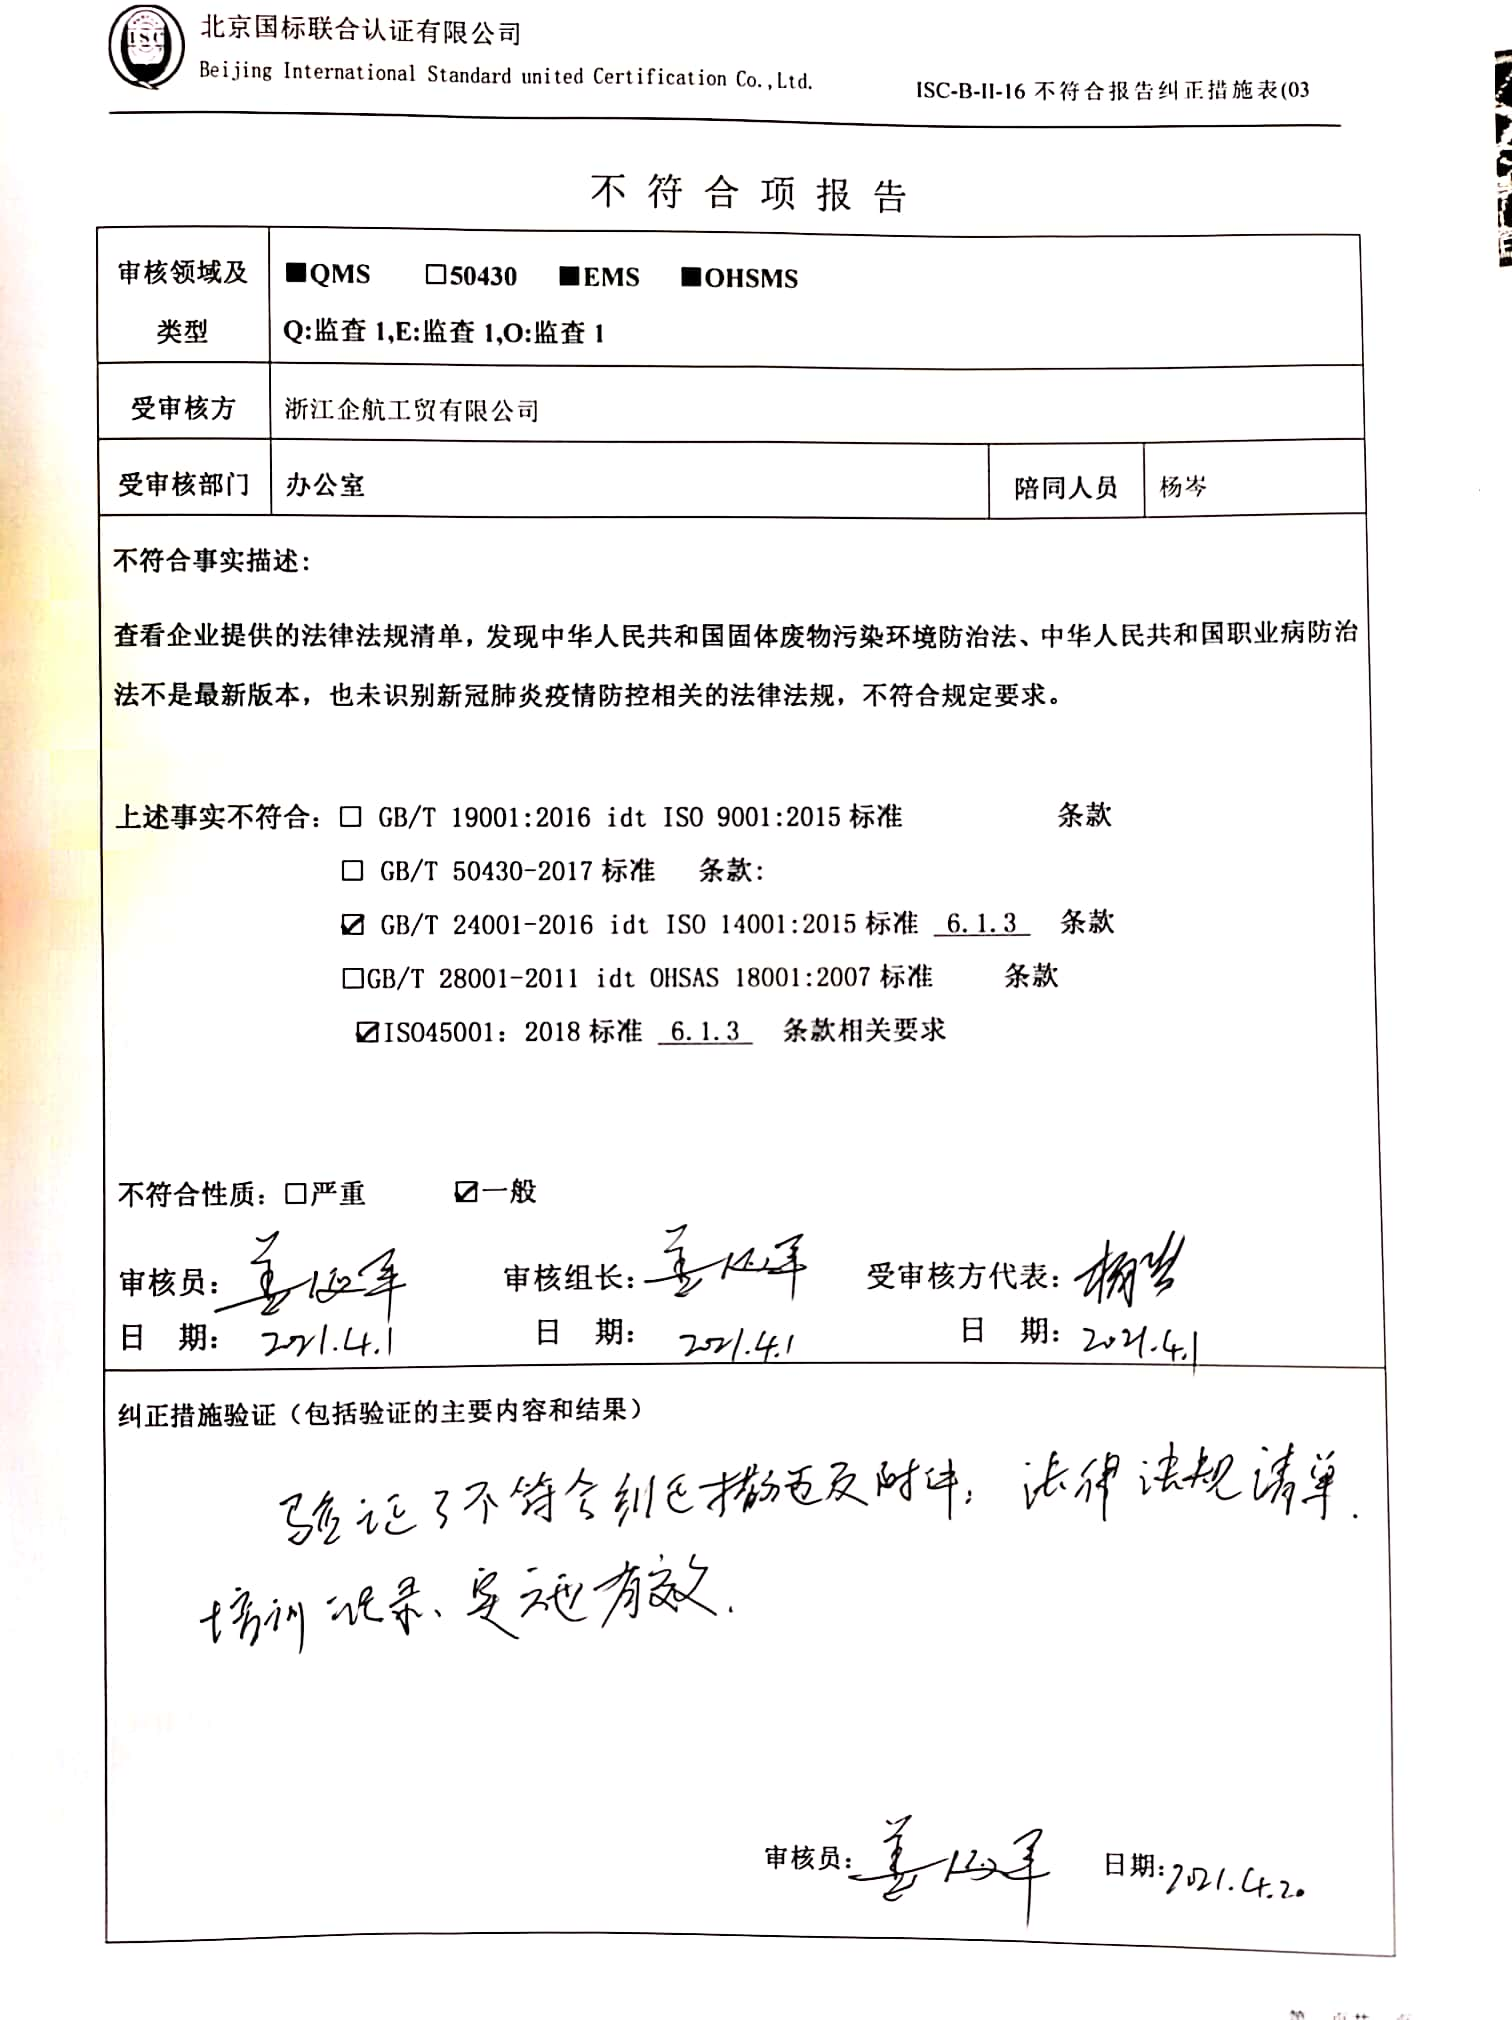 ISC
北京国标联合认证有限公司
Beijing International Standard united Certification Co.,Ltd.
ISC-B-II-16 不符合报告纠正措施表(03
不符合项报告
审核领域及类型
■QMS □50430 ■EMS ■OHSMS
Q:监查 1,E:监查 1,O:监查 1
受审核方 浙江企航工贸有限公司
受审核部门 办公室 陪同人员 杨岑
不符合事实描述:
查看企业提供的法律法规清单，发现中华人民共和国固体废物污染环境防治法、中华人民共和国职业病防治
法不是最新版本，也未识别新冠肺炎疫情防控相关的法律法规，不符合规定要求。
上述事实不符合: □ GB/T 19001:2016 idt ISO 9001:2015 标准 条款
□ GB/T 50430-2017 标准 条款:
☑ GB/T 24001-2016 idt ISO 14001:2015 标准 6.1.3 条款
□GB/T 28001-2011 idt OHSAS 18001:2007 标准 条款
☑ISO45001: 2018 标准 6.1.3 条款相关要求
不符合性质: □严重 ☑一般
审核员: 审核组长: 受审核方代表: 杨岑
日 期: 2021.4.1 日 期: 2021.4.1 日 期: 2021.4.1
纠正措施验证（包括验证的主要内容和结果）
验证了不符合纠正措施及附件：法律法规清单.
培训记录、实施有效.
审核员: 日期: 2021.4.20